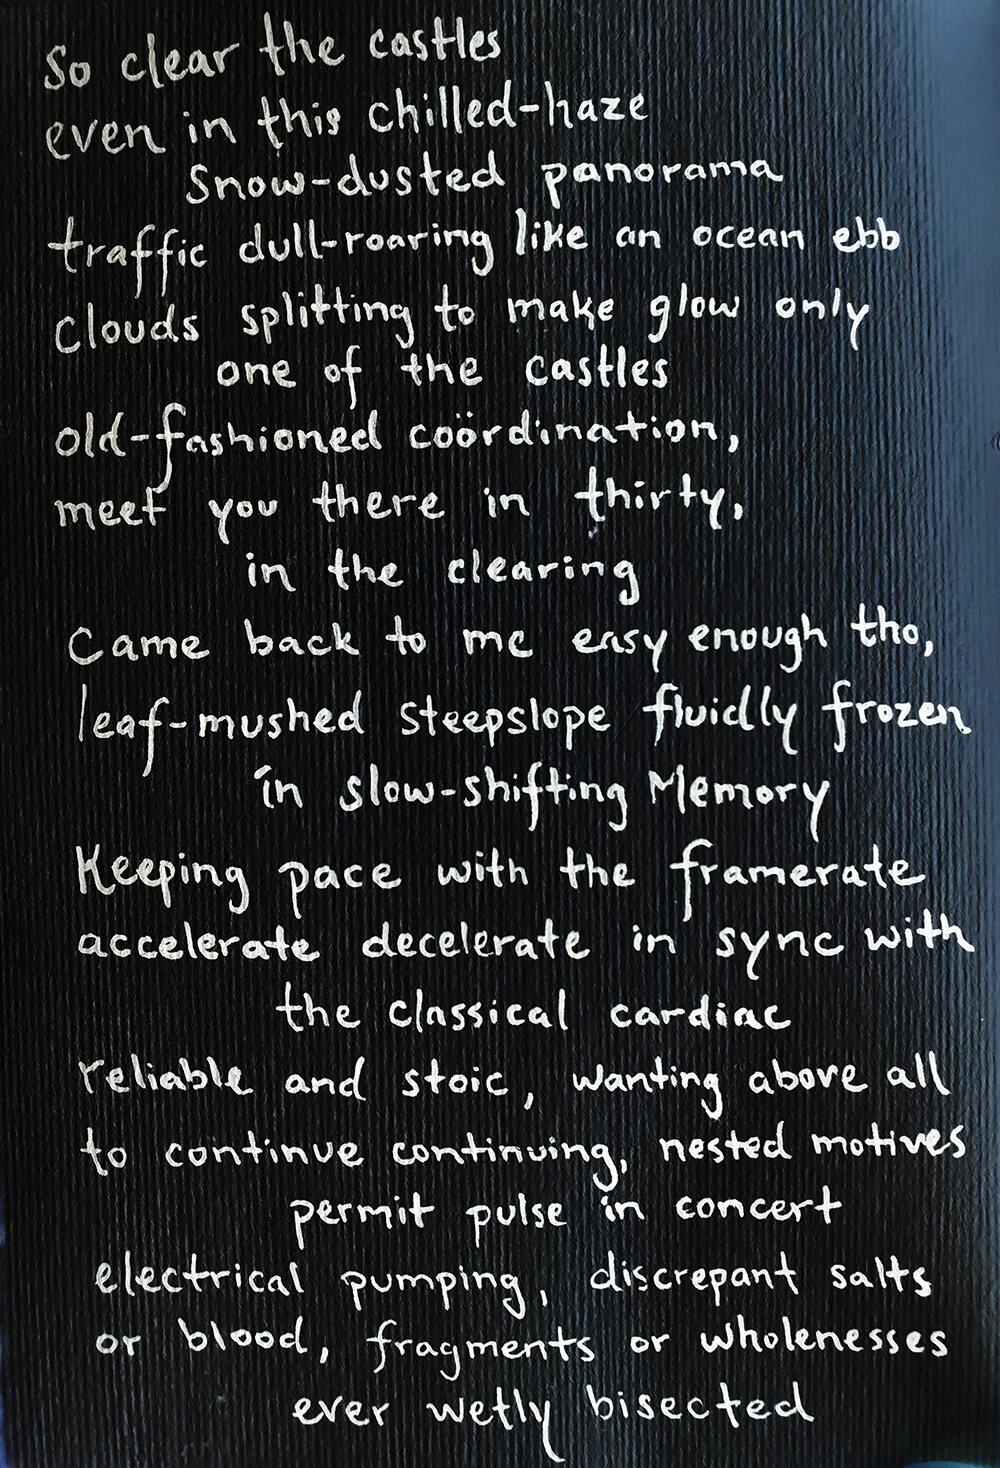 So clear the castles
even in this chilled-haze
Snow-dusted panorama
traffic dull-roaring like an ocean ebb
Clouds splitting to make glow only
one of the castles
old-fashioned coördination,
meet you there in thirty,
in the clearing
Came back to me easy enough tho,
leaf-mushed steepslope fluidly frozen
in slow-shifting Memory
Keeping pace with the framerate
accelerate decelerate in sync with
the classical cardiac
reliable and stoic, wanting above all
to continue continuing, nested motives
permit pulse in concert
electrical pumping, discrepant salts
or blood, fragments or wholenesses
ever wetly bisected